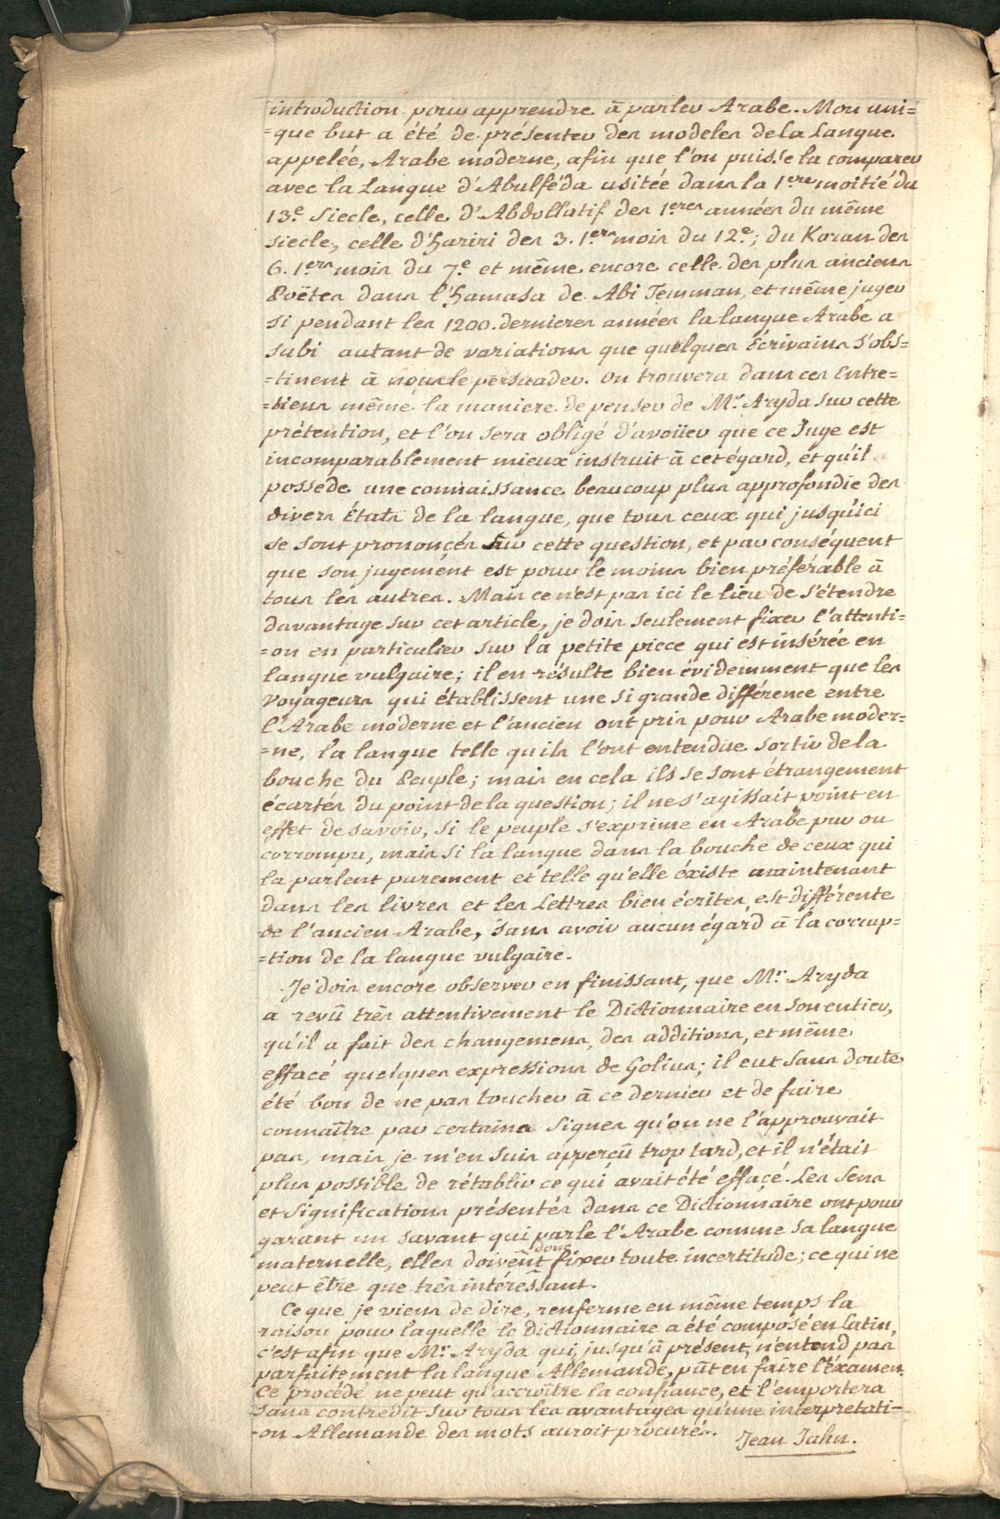 introduction pour apprendre à parler Arabe. Mon uni=
=que but a été de présenter des modeles de la Langue
appelée, Arabe moderne, afin que l'on puisse la comparer
avec la Langue d'Abulféda usitée dans la 1ere moitié du
13.e Siecle, celle d'Abdollatif des 1eres années du même
siecle, celle d'Hariri des 3. 1ers mois du 12.e; du Koran des
6. 1ers mois du 7.e et même encore celle des plus anciens
Poëtes dans l'Hamasa de Abi Temman, et même juger
si pendant les 1200. dernieres années la langue Arabe a
subi autant de variations que quelques Écrivains s'obs=
=tinent à nous le persuader. On trouvera dans ces Entre=
=tiens même la maniere de penser de Mr. Aryda sur cette
prétention, et l'on sera obligé d'avoüer que ce Juge est
incomparablement mieux instruit à cet égard, et qu'il
possede une connaissance beaucoup plus approfondie des
divers États de la langue, que tous ceux qui jusqu'ici
se sont prononcés sur cette question, et par conséquent
que son jugement est pour le moins bien préférable à
tous les autres. Mais ce n'est pas ici le lieu de s'étendre
davantage sur cet article, je dois seulement fixer l'attenti=
=on en particulier sur la petite piece qui est insérée en
langue vulgaire; il en résulte bien évidemment que les
Voyageurs qui établissent une si grande différence entre
l'Arabe moderne et l'ancien ont pris pour Arabe moder=
=ne, la langue telle qu'ils l'ont entendue sortir de la
bouche du Peuple; mais en cela ils se sont étrangement
écartés du point de la question; il ne s'agissait point en
effet de savoir, si le peuple s'exprime en Arabe pur ou
corrompu, mais si la langue dans la bouche de ceux qui
la parlent purement et telle qu'elle éxiste maintenant
dans les livres et les Lettres bien écrites, est différente
de l'ancien Arabe, sans avoir aucun égard à la corrup=
=tion de la langue vulgaire.
Je dois encore observer en finissant, que Mr. Aryda
a revû très attentivement le Dictionnaire en son entier,
qu'il a fait des changemens, des additions, et même
effacé quelques expressions de Golius; il eut sans doute
été bon de ne pas toucher à ce dernier et de faire
connaître par certains signes qu'on ne l'approuvait
pas, mais je m'en suis apperçû trop tard, et il n'était
plus possible de rétablir ce qui avait été effacé. Les Sens
et significations présentés dans ce Dictionnaire ont pour
garant un savant qui parle l'Arabe comme sa langue
maternelle, elles doivent donc fixer toute incertitude; ce qui ne
peut être que très intéressant.
Ce que je viens de dire, renferme en même temps la
raison pour laquelle le Dictionnaire a été composé en Latin,
c'est afin que Mr. Aryda qui, jusqu'à présent, n'entend pas
parfaitement la langue Allemande, pût en faire l'éxamen.
Ce procédé ne peut qu'accroître la confiance, et l'emportera
sans contredit sur tous les avantages qu'une interpretati=
=on Allemande des mots auroit procurés.
Jean Jahn.